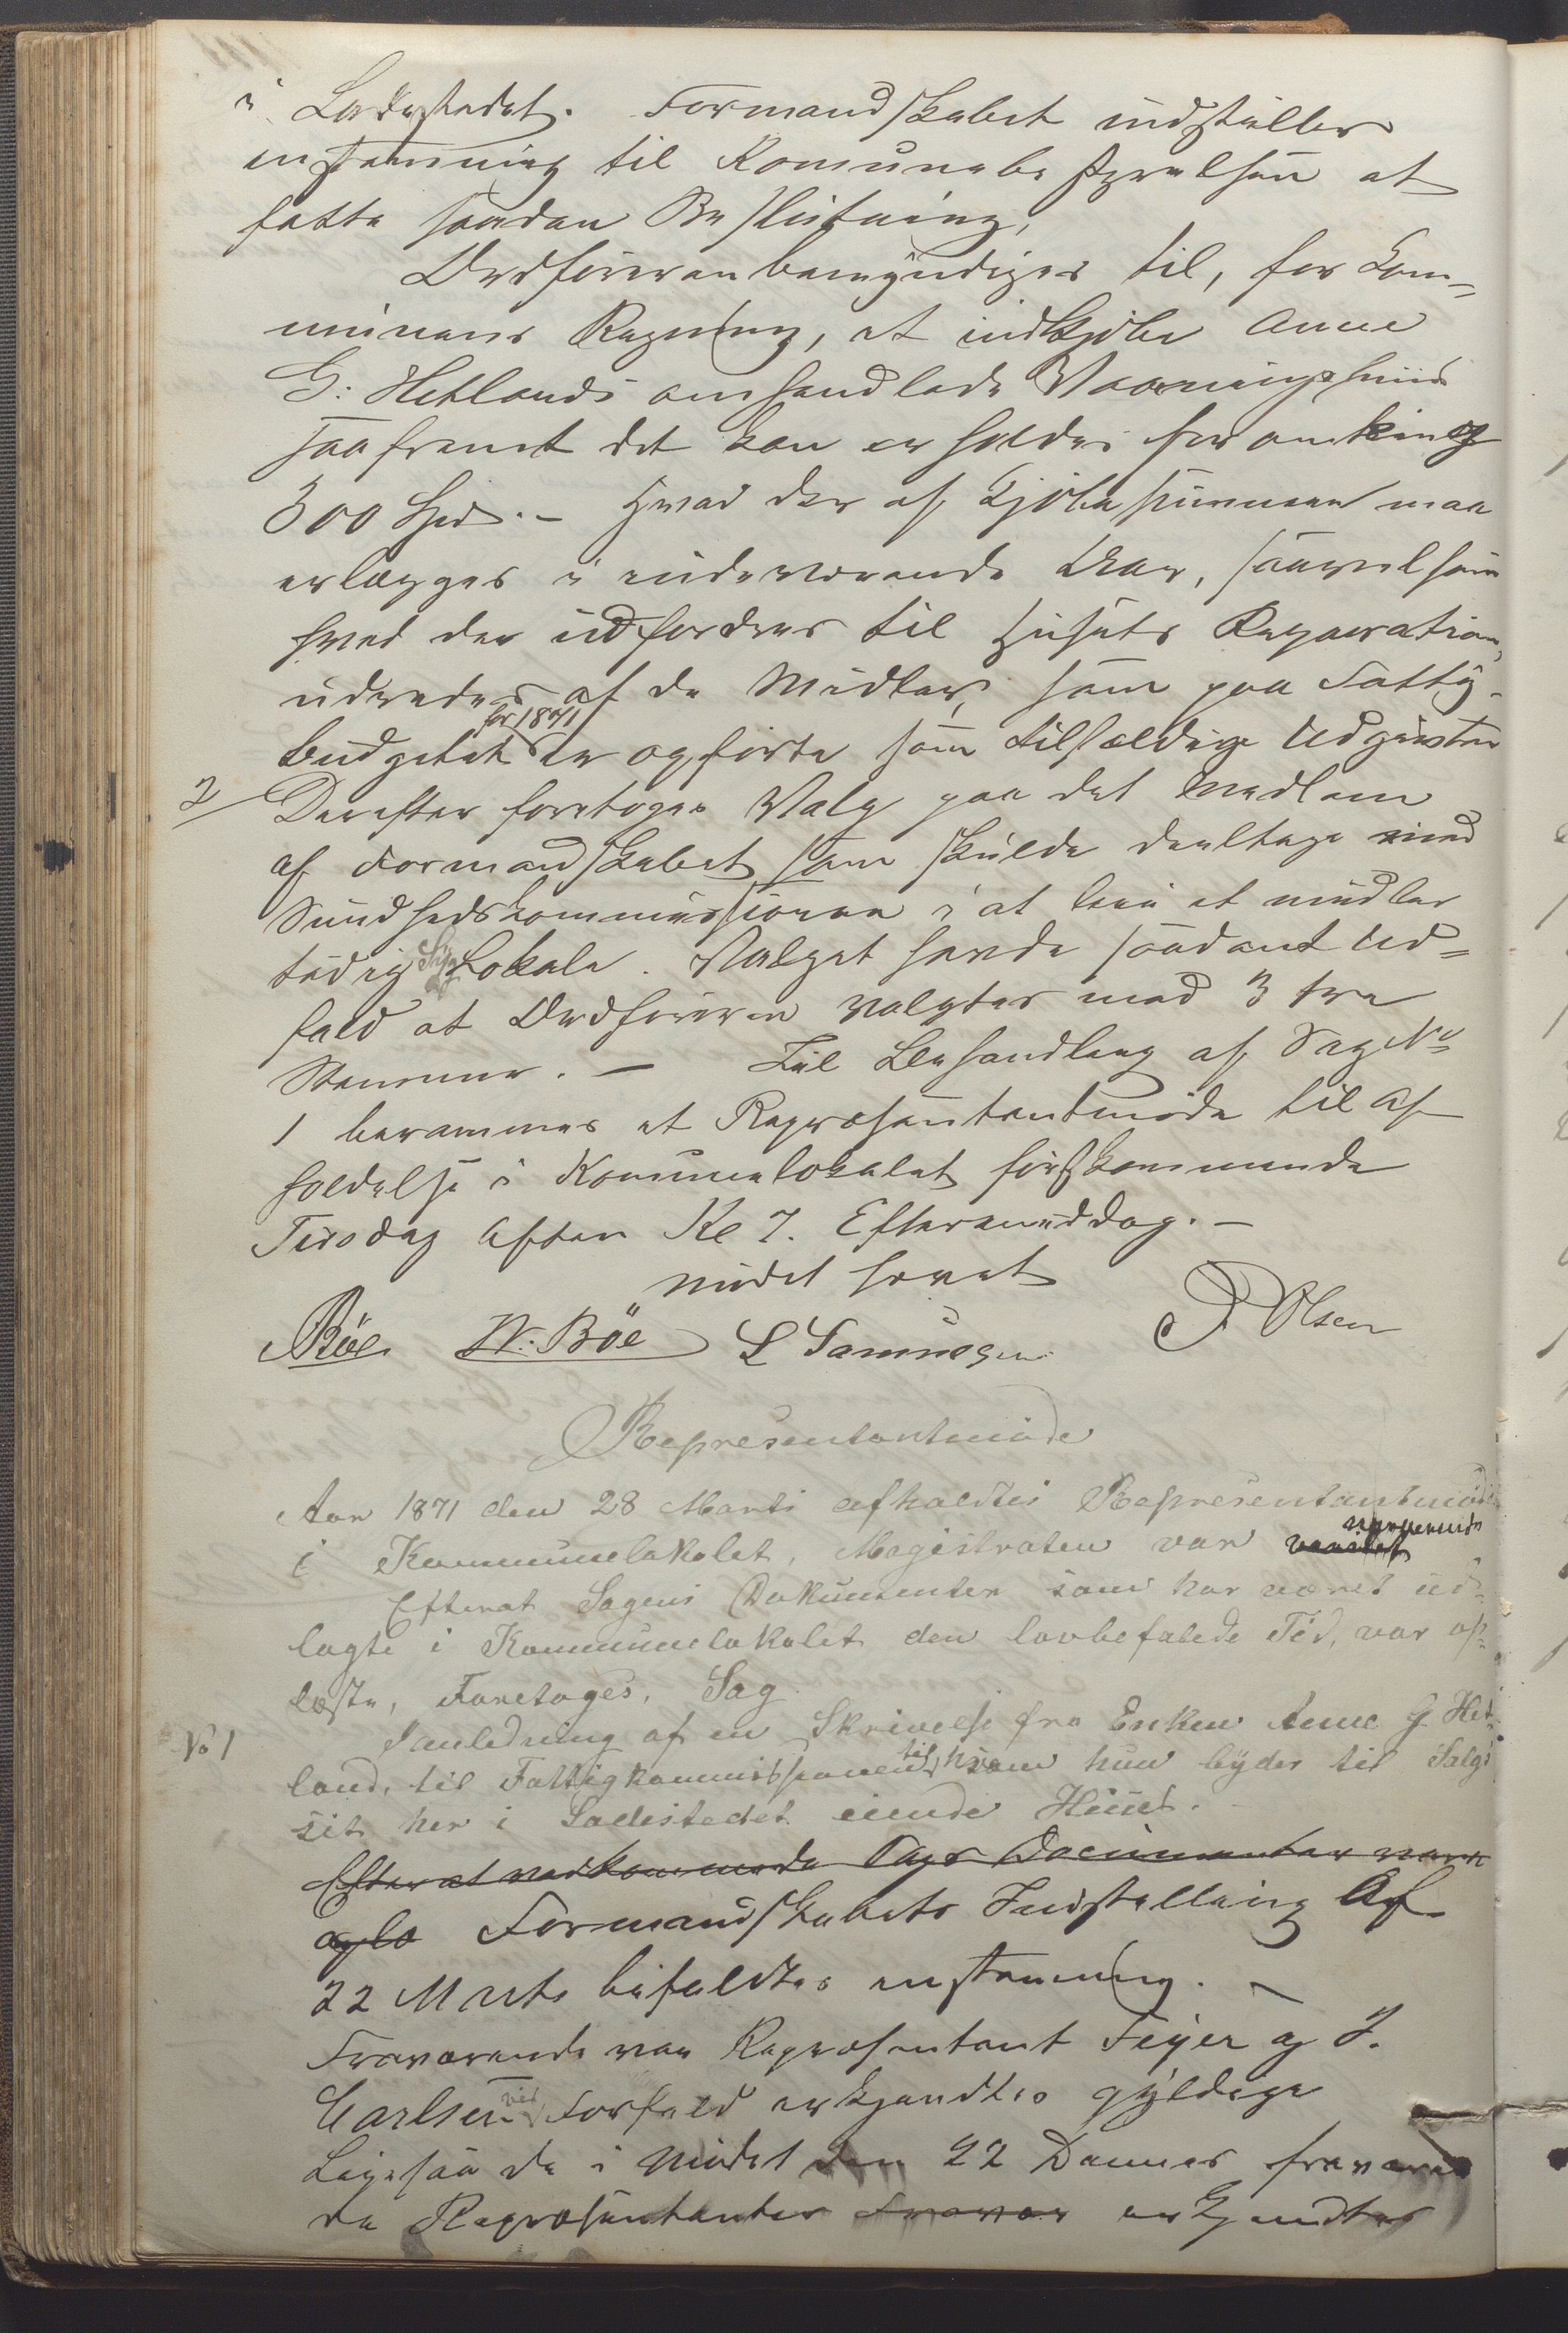 i Ladestedet. Formandskabet indstiller
enstemmig til Komunebestyrelsen at
fatte saadan Beslutning,
Ordføreren bemyndiges til, for Kom-
munens Regning, at indkjøbe Anne
G. Hetlands omhandlede Vaaningshuus
saafremt det kan erholdes for omkring
300 Spd. – Hvad der af Kjøbesummen maa
erlægges i indeværende Aar, saavelsom
hvad der udfordres til Husets Reparation,
udredes af de Midler, som paa Fattig-
for 1871
budgetet er opførte som tilfældige Udgivter
2 Derefter foretoges Valg paa det Medlem
af Formandskabet som skulde deeltage med
Sundhedskommissionen i at leie et midler
tidig Syge Lokale. Valget havde saadant Ud-
fald at Ordføreren valgtes med 3 tre
Stemmer. – Til Behandling af Sag No
1 berammes et Repræsentantmøde til af-
holdelse i Kommunelokalet førstkommende
Tirsdag Aften Kl 7. Eftermiddag. –
mødet hævet
Böe N. Böe L Samuelsen P Olsen
Representantmøde
Aar 1871 den 28 Marti afholdtes Representantmøde
nærværende
i Kommunelokalet, Magistraten var varslet
Efterat Sagens Dokumenter som har været ud-
lagte i Kommunelokalet den lovbefalede Tid, var op-
læste, Foretages, Sag
No 1 I anledning af en Skrivelse fra Enken Anne G. Het-
land, til Fattigkommissionen, hvori hun byder til Salgs
sit her i Ladestedet eiende Huus.
Efter at vedkommende Sags Documenter vare
oplæ Formandskabets Indstilling Af
22 Marts bifaldtes enstemmig. –
Fraværende var Repræsentant Feyer og J.
Carlsen vis Forfald erkjendtes gyldige
Ligesaa de i Mødet den 22 Dennes fraværen
de Repræsentanter Fravær erkjendtes